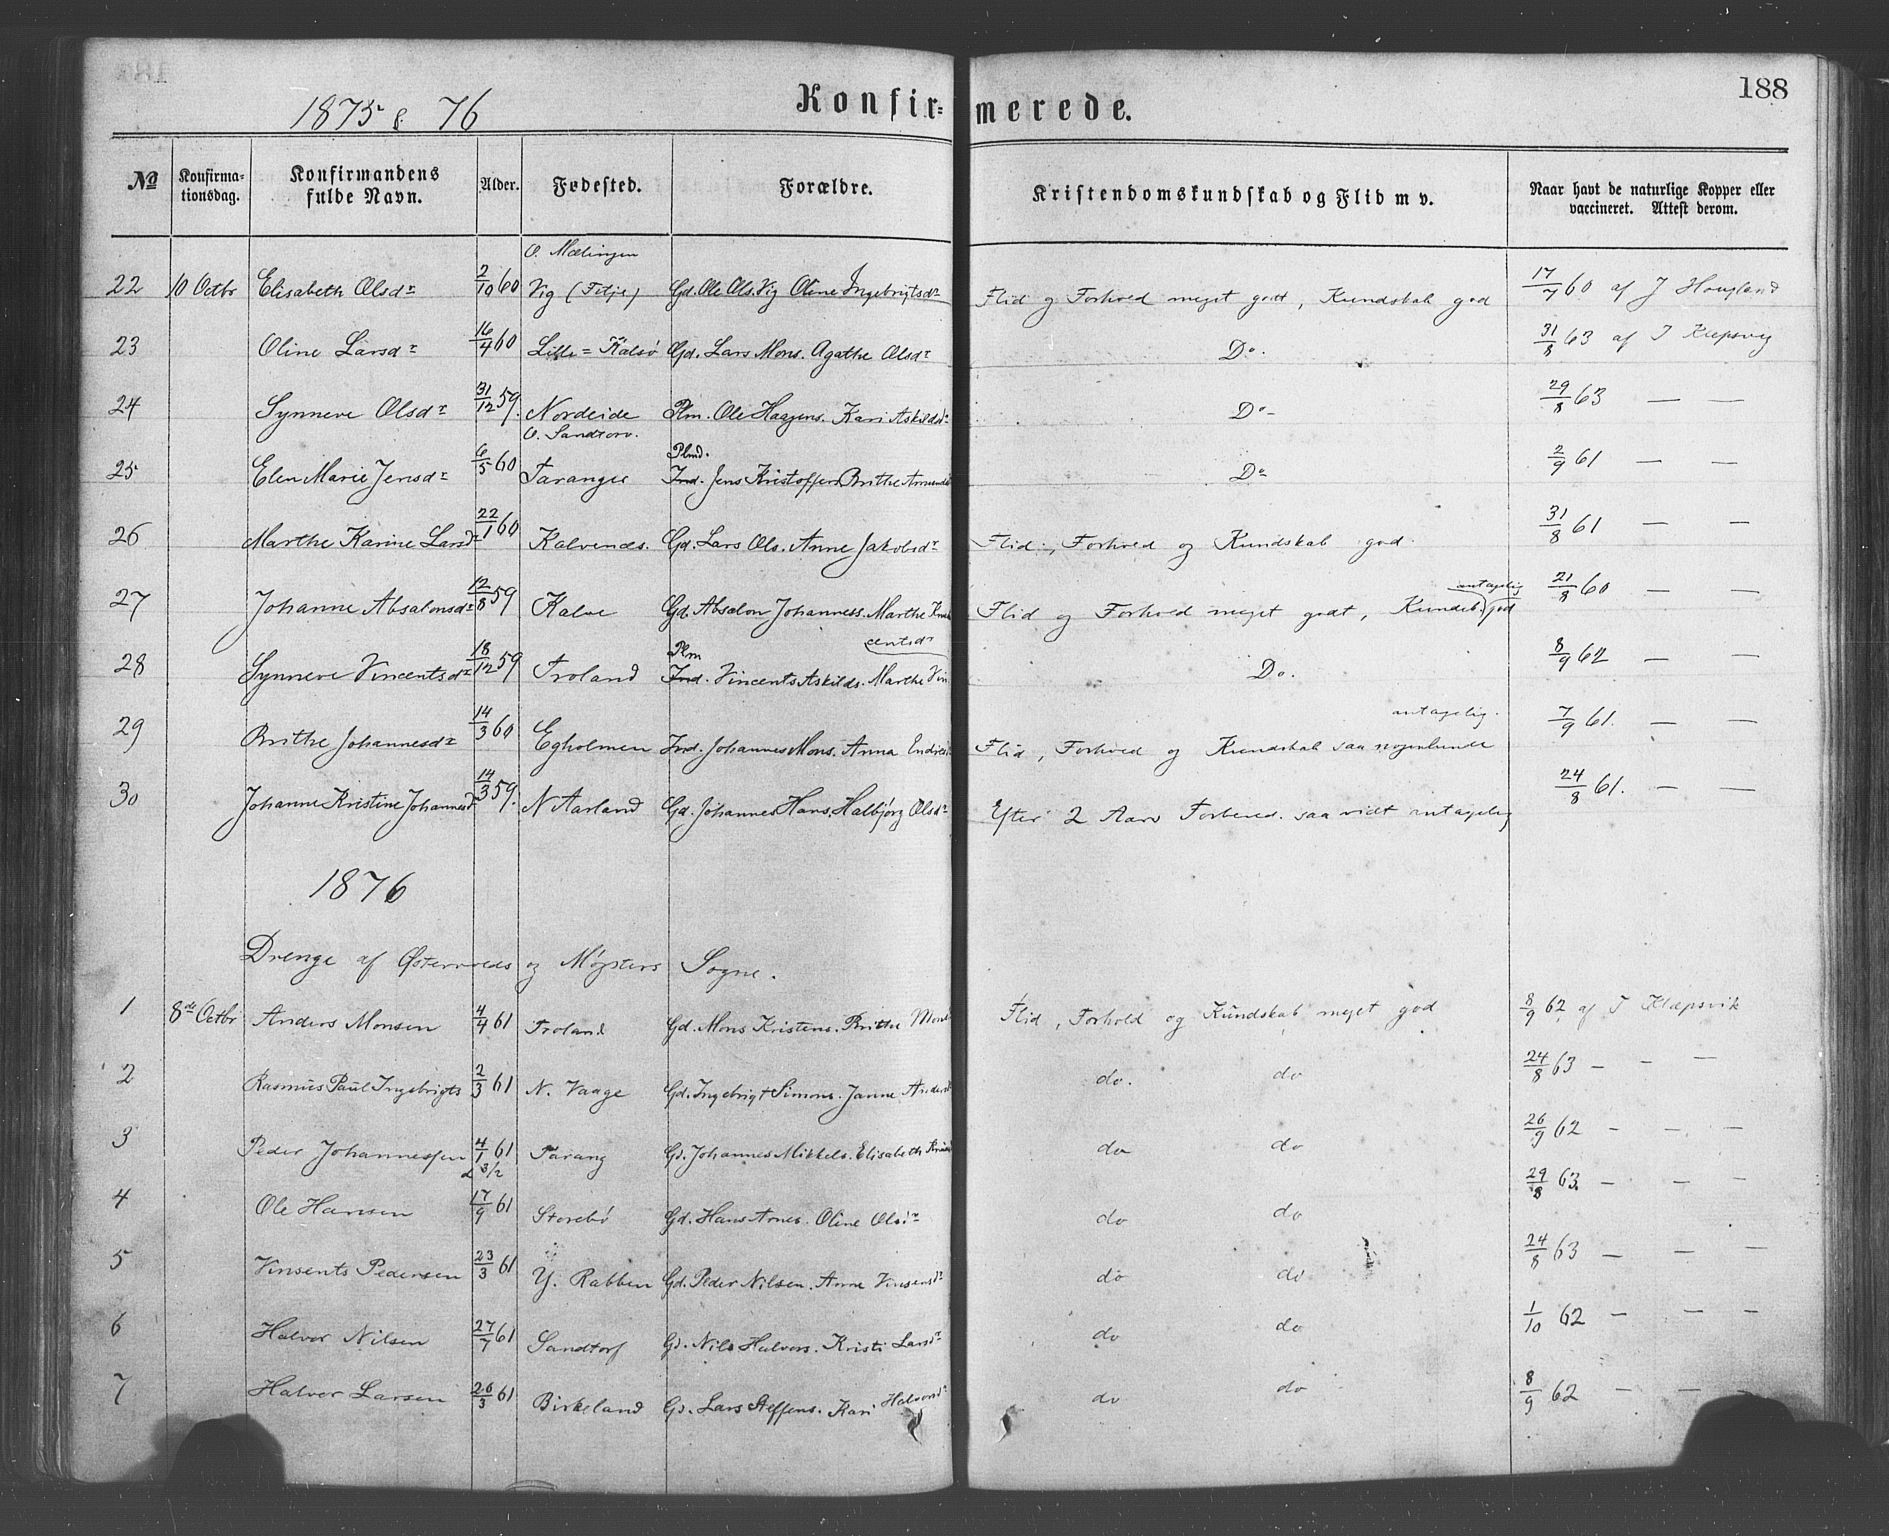 188
1875 & 76 Konfir= merede.
No Konfirma-tionsdag. Konfirmandens fulde Navn. Alder. Fødested. Forældre. Kristendomskundskab og Flid m v. Naar havt de naturlige Kopper eller vaccineret. Attest derom.
O. Mælingen
22 10 Octbr Elisabeth Olsdr 2/10 60 Vig (Fitje) Gd. Ole Ols. Vig Oline Ingebrigtsdr Flid og Forhold meget godt, Kundskab god 17/7 60 af J Hougland
23 Oline Larsdr 16/4 60 Lille=Kalsø Gd. Lars Mons. Agathe Olsdr Do. 31/8 63 af J Klepsvig
24 Synneve Olsdr 31/12 59. Nordeide Plm. Ole Haagens. Kari Askildsdr Do- 29/8 63 — —
O. Sandtorv. Plmd.
25 Elen Marie Jensdr 6/5 60 Taranger Ind. Jens Kristoffers Brithe Amunds Do 2/9 61 — —
26 Marthe Karine Larsdr 22/1 60 Kalvenes. Gd. Lars Ols. Anne Jakobsdr Flid, Forhold og Kundskab god. 31/8 61 — —
antagelig
27 Johanne Absalonsdr 12/8 59 Kalve Gd. Absalon Johanness. Marthe Flid og Forhold meget godt, Kundsk. god 21/8 60 — —
Plm centsdr
28 Synneve Vincentsdr 18/12 59 Troland Ind. Vincents Askilds. Marthe Vin Do. 8/9 62 — —
antagelig.
29 Brithe Johannesdr 14/3 60 Egholmen Ind. Johannes Mons. Anna Endres Flid, Forhold og Kundskab saa nogenlunde 7/9 61. — —
30 Johanne Kristine Johannesd 14/3 59. N Aarland Gd. Johannes Hans. Halbjørg Olsdr Efter 2 Aars Forbered. saavidt antagelig 24/8 61. — —
1876
Drenge af Østervolds og Møgsters Sogne.
1 8de Octbr Anders Monsen 4/4 61 Troland Gd. Mons Kristens. Brithe Mons Flid, Forhold og Kundskab meget god 8/9 62 af J Klæpsvik
2 Rasmus Paul Ingebrigts 2/3 61 N. Vaage Gd. Ingebrigt Simons. Janne Anders do. do 24/8 63 — —
3 Peder Johannessen 4/1 61 Tarang Gd. Johannes Mikkels. Elisabeth do do 26/9 62 - — —
d 3/2
4 Ole Hansen 17/9 61 Storebø Gd. Hans Arnes. Oline Olsdr do do 29/8 63. — — —
5 Vinsents Pedersen 23/3 61 Y. Rabben Gd. Peder Nilsen. Anne Vinsensdr do do 24/8 63 — — —
6 Halvor Nilsen 27/7 61 Sandtorf Gd. Nils Halvors. Kristi Larsdr do do 1/10 62 — — —
7 Halvor Larsen 26/3 61 Birkeland Gd. Lars Steffens. Kari Halvorsdr do do 8/9 62 — — —